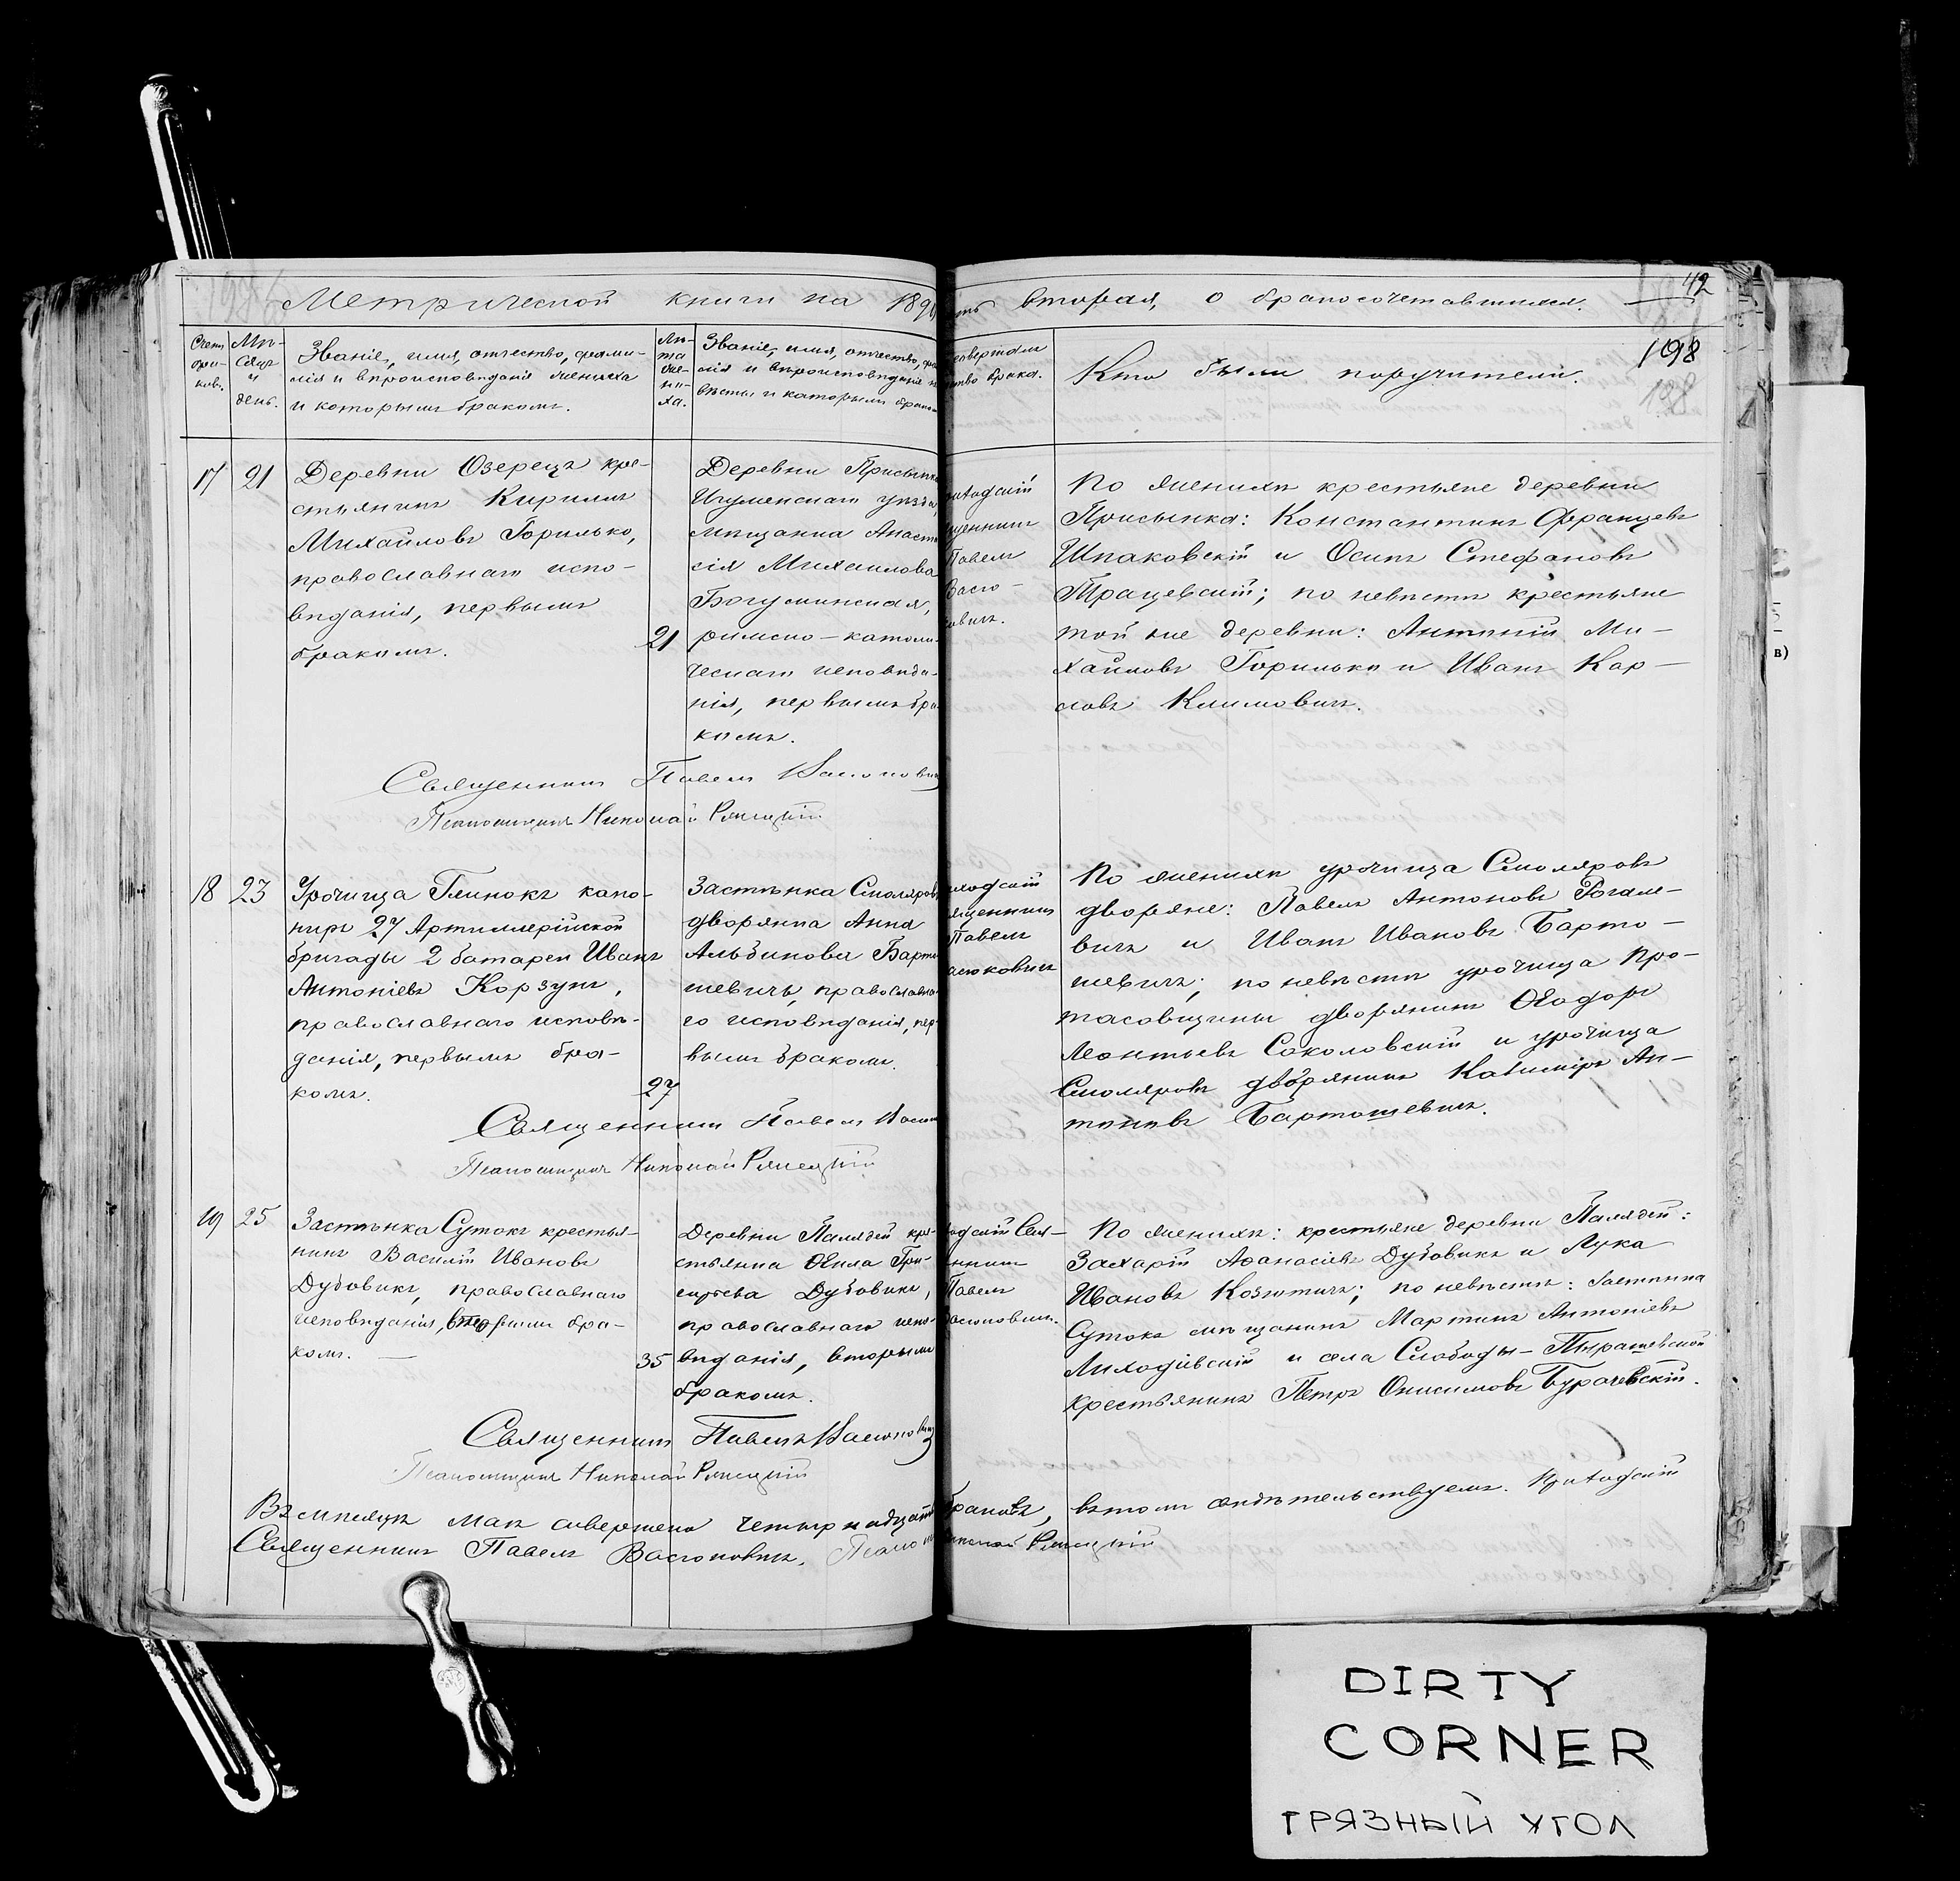 Метрической книги на 189
вторая, о бракосочетавшихся.
42
198
198
Счетъ браковъ.
Мѣсяцъ и день.
Званіе, имя, отчество, фамилія и вѣроисповѣданіе жениха и которымъ бракомъ.
Лѣта жениха.
Званіе, имя, отчество, фа
лія и вѣроисповѣданіе не
вѣсты и которымъ брако
Кто были поручители.
17 21
Деревни Озерецъ кре-
стьянинъ Кириллъ
Михайловъ Горилько,
православнаго испо-
вѣданія, первымъ
бракомъ.
21
Деревни Присынка
Игуменскаго уѣзда,
мѣщанка Анаста
сія Михаилова
Богуминская,
римско-католи-
ческаго исповѣда-
нія, первымъ бра
комъ.
Павелъ
По женихѣ крестьяне деревни
Присынка: Константинъ Францевъ
Шпаковскій и Осипъ Стефановъ
Трацевскій; по невѣстѣ крестьяне
той же деревни: Антоній Ми-
хайловъ Горилько и Иванъ Кар-
ловъ Климовичъ.
Священникъ Павелъ Васюкович
Псаломщикъ Николай
18 23
Урочища Глинокъ кано-
ниръ 27 Артиллерійской
бригады 2 батареи Иванъ
Антоніевъ Корзунъ,
православнаго исповѣ-
данія, первымъ бра-
комъ.
27
Застѣнка Смоляровъ
дворянка Анна
Альбинова Барто
шевичъ, православна-
го исповѣданія, пер-
вымъ бракомъ.
Павелъ
По женихѣ урочища Смоляровъ
дворяне: Павелъ Антоновъ Рогале-
вичъ и Иванъ Ивановъ Барто-
шевичъ; по невѣстѣ урочища Про-
тасовщины дворянинъ Ѳеодоръ
Леонтьевъ Соколовскій и урочища
Смоляровъ дворянинъ Казиміръ Ан-
тоновъ Бартошевичъ.
Священникъ Павелъ Васюк
Псаломщикъ Николай
19 25
Застѣнка Сутокъ крестья-
нинъ Василій Ивановъ
Дубовикъ, православнаго
исповѣданія, вторымъ бра-
комъ. —
35
Деревни Палядей кре-
стьянка Ѳекла Гри-
горьева Дубовикъ,
православнаго испо-
вѣданія, вторымъ
бракомъ.
Павелъ
По женихѣ: крестьяне деревни Палядей:
Захарій Аѳанасіевъ Дубовикъ и Лука
Ивановъ Козютичъ; по невѣстѣ: застѣнка
Сутокъ мѣщанинъ Мартинъ Антоніевъ
Лиходіевскій и села Слободы-Пырашевской
крестьянинъ Петръ Онисимовъ Бурачевскій.
Священникъ Павелъ Васюкович
Псаломщикъ Николай
Въ мѣсяцѣ маѣ совершено четырнадцать браковъ, въ томъ свидѣтельствуемъ. Приходскій
Священникъ Павелъ Васюковичъ.
DIRTY
CORNER
ГРЯЗНЫЙ УГОЛ